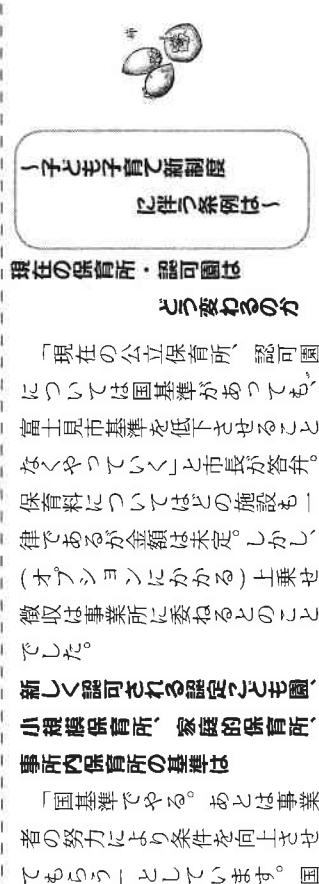 柿
～子ども子育て新制度
に伴う条例は～
現在の保育所・認可園は
どう変わるのか
「現在の公立保育所、認可園
については国基準があっても、
富士見市基準を低下させること
なくやっていく」と市長が答弁。
保育料についてはどの施設も一
律であるが金額は未定。しかし、
(オプションにかかる)上乗せ
徴収は事業所に委ねるとのこと
でした。
新しく認可される認定こども園、
小規模保育所、家庭的保育所、
事所内保育所の基準は
「国基準でやる。あとは事業
者の努力により条件を向上させ
てもらう」としています。国